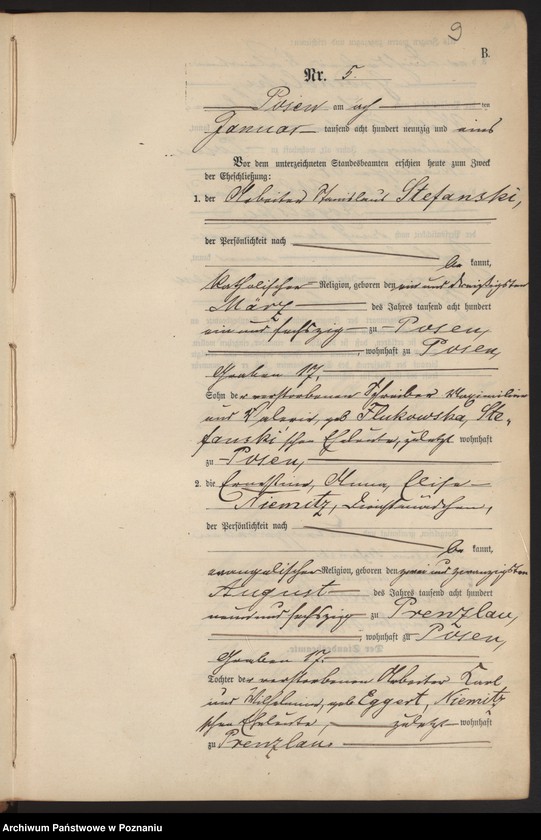 9
B.
Nr. 5.
Posen am acht ten
Januar tausend acht hundert neunzig und eins
Vor dem unterzeichneten Standesbeamten erschien heute zum Zweck
der Eheschließung:
1. der Arbeiter Stanislaus Stefanski,
der Persönlichkeit nach
be kannt,
katholischer Religion, geboren den ein und dreißigsten
März des Jahres tausend acht hundert
ein und sechszig zu Posen,
, wohnhaft zu Posen,
Graben 17,
Sohn der verstorbenen Schreiber Maximilian
und Valerie, geb Flukowska, Ste-
fanski'schen Eheleute, zuletzt wohnhaft
zu Posen,
2. die Ernestine, Anna, Elise
Niemitz, Dienstmädchen,
der Persönlichkeit nach
be kannt,
evangelischer Religion, geboren den zwei und zwanzigsten
August des Jahres tausend acht hundert
neun und sechszig zu Prenzlau,
, wohnhaft zu Posen,
Graben 17.
Tochter der verstorbenen Arbeiter Karl
und Wilhelmine, geb Eggert, Niemitz
'schen Eheleute, zuletzt wohnhaft
zu Prenzlau.
Archiwum Państwowe w Poznaniu
Archiwum Państwowe w Poznaniu